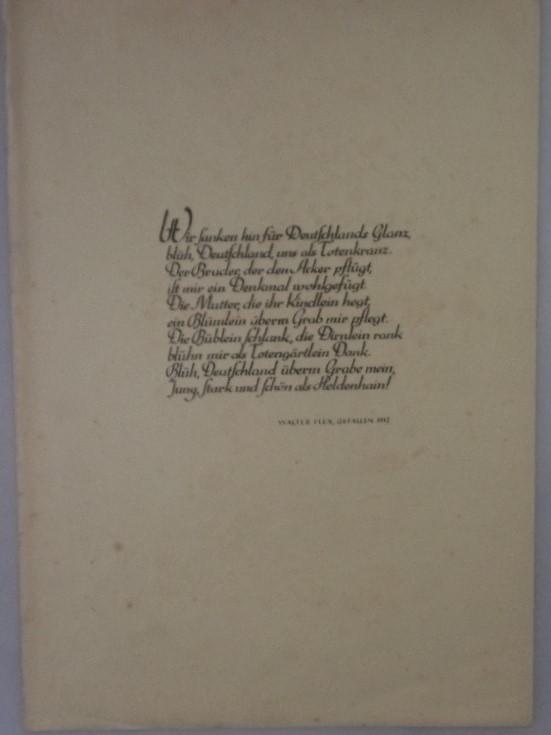 Wir sanken hin für Deutschlands Glanz,
blüh, Deutschland, uns als Totenkranz.
Der Bruder, der den Acker pflügt,
ist mir ein Denkmal wohlgefügt.
Die Mutter, die ihr Kindlein hegt,
ein Blümlein überm Grab mir pflegt.
Die Büblein schlank, die Dirnlein rank
blühn mir als Totengärtlein Dank.
Blüh, Deutschland überm Grabe mein,
Jung, stark und schön als Heldenhain!
WALTER FLEX, GEFALLEN 1917